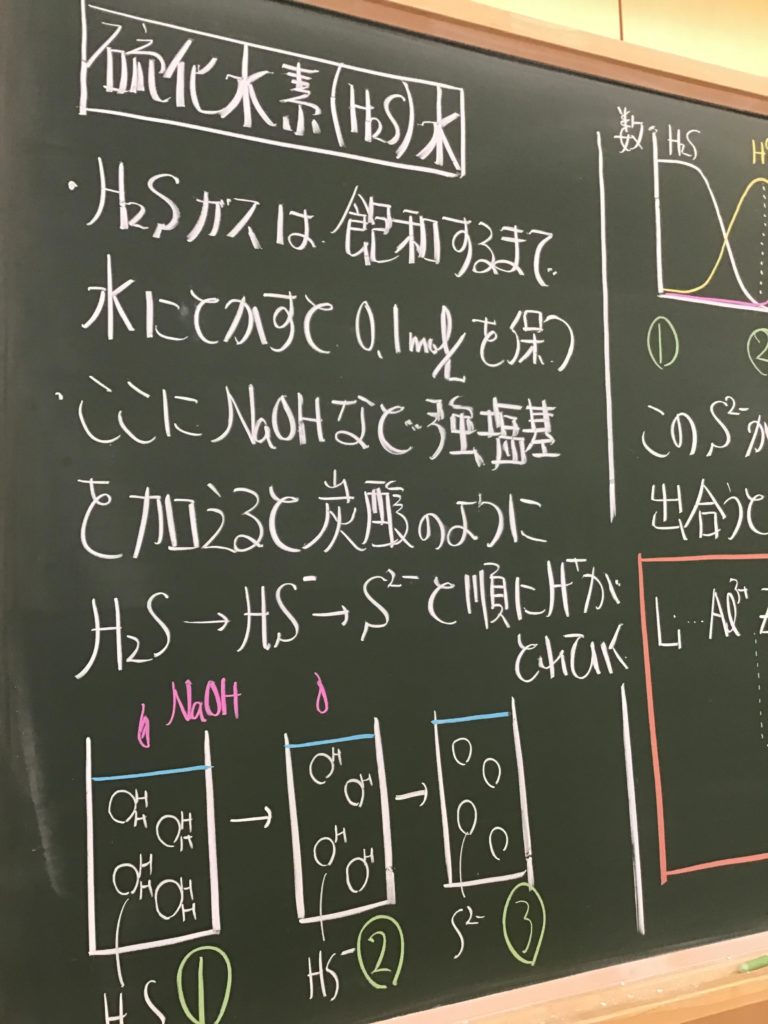 硫化水素(H₂S)水
・H₂Sガスは飽和するまで
水にとかすと 0.1mol/Lを保つ
・ここにNaOHなど強塩基
を加えると炭酸のように
H₂S→HS⁻→S²⁻と順にH⁺が
とれていく
NaOH
H H H H H H H H
H H H H
H₂S ①
HS⁻ ②
S²⁻ ③
数 H₂S
① ②
このS²⁻が
出合うと
Li…Al³⁺